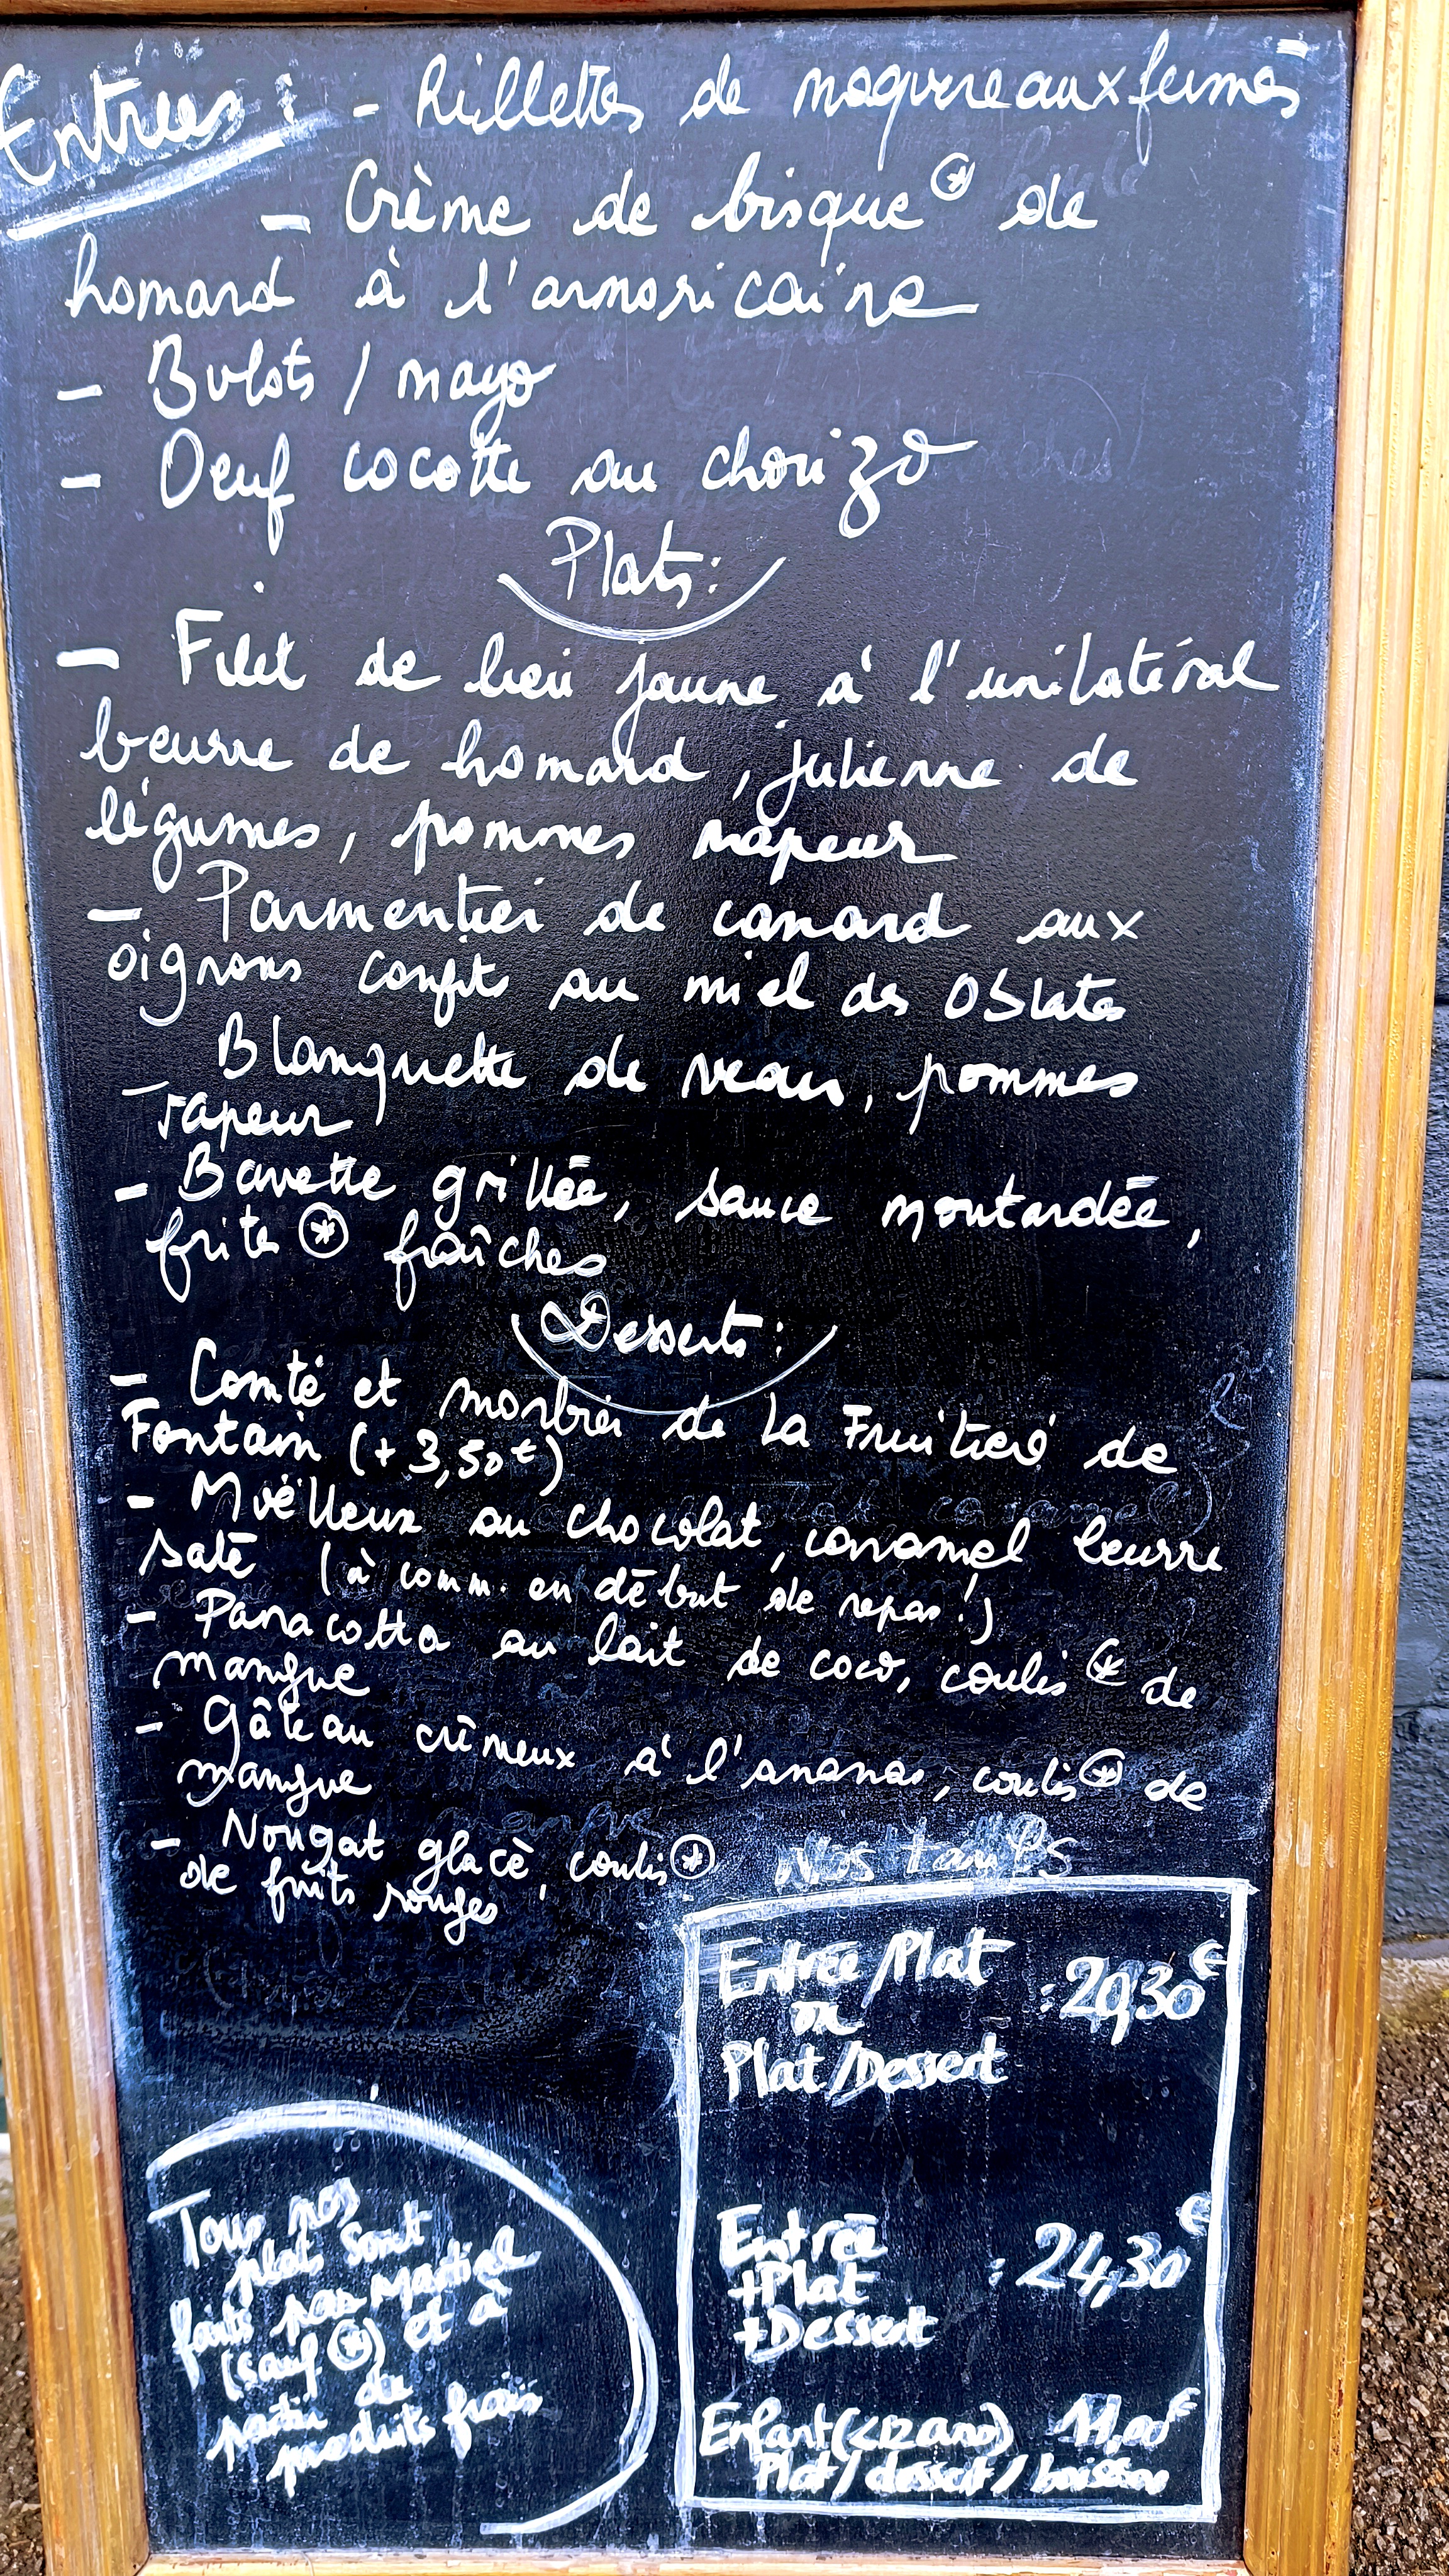 Entrées : - Rillettes de maquereaux fumés
- Crème de bisque * de
homard à l'armoricaine
- Bulots / mayo
- Oeuf cocotte au chorizo
Plats :
- Filet de lieu jaune à l'unilatéral
beurre de homard, julienne de
légumes, pommes vapeur
- Parmentier de canard aux
oignons confits au miel des Oblates
- Blanquette de veau, pommes
vapeur
- Bavette grillée, sauce moutardée,
frites * fraîches
Desserts :
- Comté et morbier de La Fruitière de
Fontain (+ 3,50€)
- Moëlleux au chocolat, caramel beurre
salé (à comm. en début de repas !)
- Panacotta au lait de coco, coulis * de
mangue
- Gâteau crémeux à l'ananas, coulis * de
mangue
- Nougat glacé, coulis *
de fruits rouges
Nos tarifs
Entrée/Plat : 20,30€
ou
Plat/Dessert
Entrée
+Plat : 24,30€
+Dessert
Enfant (<12 ans) 11,00€
Plat / dessert / boisson
Tous nos
plats sont
faits par Martial
(sauf *) et à
partir de
produits frais